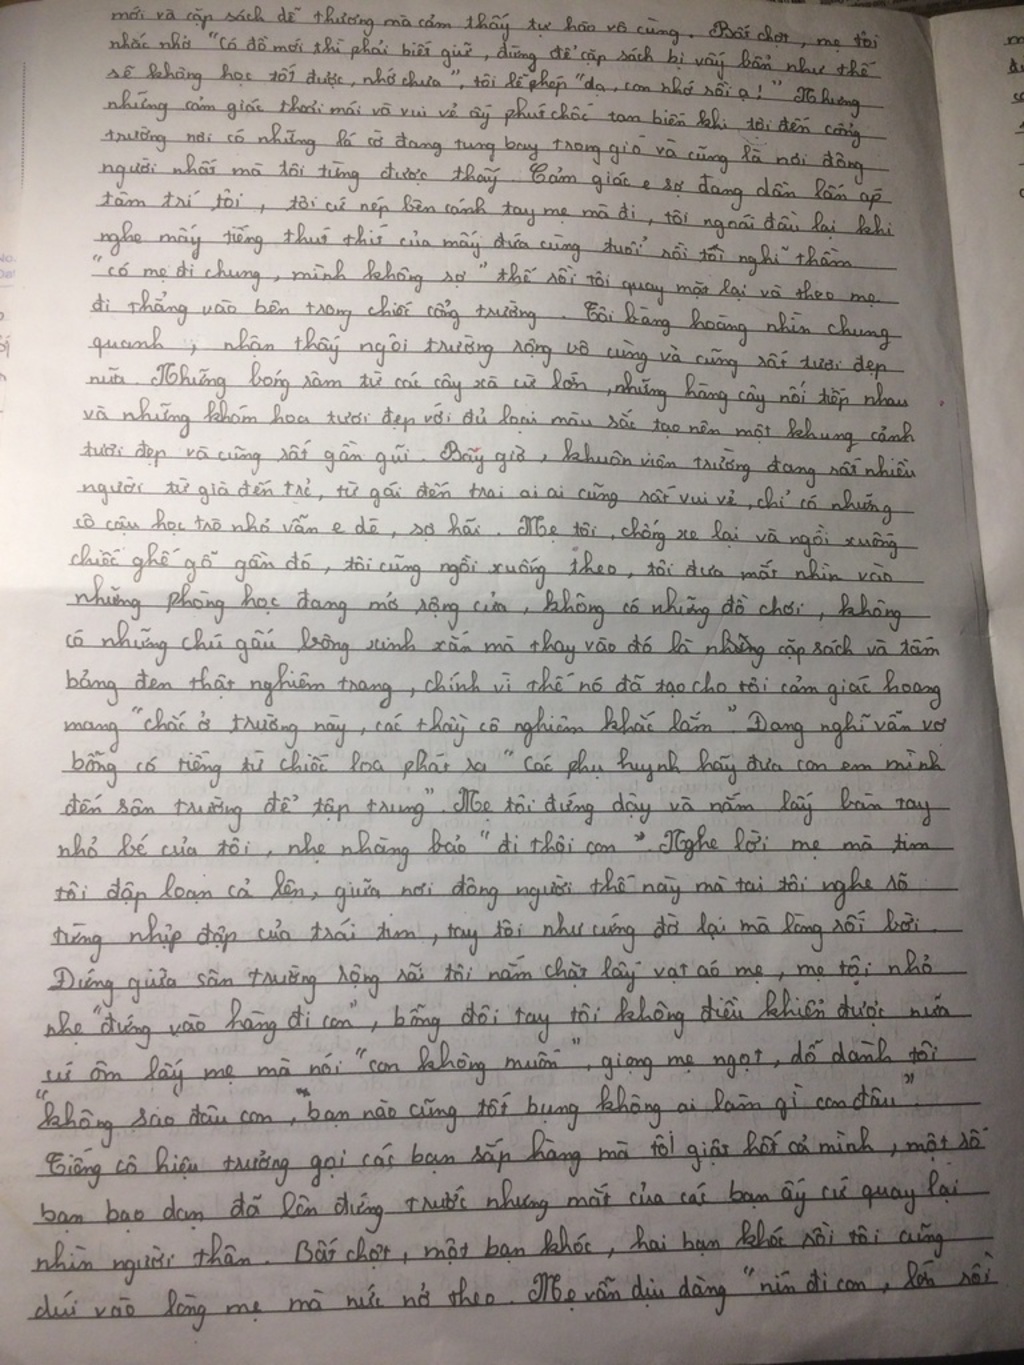 mới và cặp sách dễ thương mà cảm thấy tự hào vô cùng. Bất chợt, mẹ tôi
nhắc nhở "Có đồ mới thì phải biết giữ, đừng để cặp sách bị vấy bẩn như thế
sẽ không học tốt được, nhớ chưa", tôi lễ phép "dạ, con nhớ rồi ạ!" Nhưng
những cảm giác thoải mái và vui vẻ ấy phút chốc tan biến khi tôi đến cổng
trường nơi có những lá cờ đang tung bay trong gió và cũng là nơi đông
người nhất mà tôi từng được thấy. Cảm giác e sợ đang dần lấn áp
tâm trí tôi, tôi cứ nép bên cánh tay mẹ mà đi, tôi ngoái đầu lại khi
nghe mấy tiếng thút thít của mấy đứa cùng tuổi rồi tôi nghĩ thầm
"có mẹ đi chung, mình không sợ" thế rồi tôi quay mặt lại và theo mẹ
đi thẳng vào bên trong chiếc cổng trường. Tôi bàng hoàng nhìn chung
quanh, nhận thấy ngôi trường rộng vô cùng và cũng rất tươi đẹp
nữa. Những bóng râm từ các cây xà cừ lớn, những hàng cây nối tiếp nhau
và những khóm hoa tươi đẹp với đủ loại màu sắc tạo nên một khung cảnh
tươi đẹp và cũng rất gần gũi. Bấy giờ, khuôn viên trường đang rất nhiều
người từ già đến trẻ, từ gái đến trai ai ai cũng rất vui vẻ, chỉ có những
cô cậu học trò nhỏ vẫn e dè, sợ hãi. Mẹ tôi, chống xe lại và ngồi xuống
chiếc ghế gỗ gần đó, tôi cũng ngồi xuống theo, tôi đưa mắt nhìn vào
những phòng học đang mở rộng cửa, không có những đồ chơi, không
có những chú gấu bông xinh xắn mà thay vào đó là những cặp sách và tấm
bảng đen thật nghiêm trang, chính vì thế nó đã tạo cho tôi cảm giác hoang
mang "chắc ở trường này, các thầy cô nghiêm khắc lắm". Đang nghĩ vẩn vơ
bỗng có tiếng từ chiếc loa phát ra "Các phụ huynh hãy đưa con em mình
đến sân trường để tập trung". Mẹ tôi đứng dậy và nắm lấy bàn tay
nhỏ bé của tôi, nhẹ nhàng bảo "đi thôi con". Nghe lời mẹ mà tim
tôi đập loạn cả lên, giữa nơi đông người thế này mà tai tôi nghe rõ
từng nhịp đập của trái tim, tay tôi như cứng đờ lại mà lòng rối bời.
Đứng giữa sân trường rộng rãi tôi nắm chặt lấy vạt áo mẹ, mẹ tôi nhỏ
nhẹ "đứng vào hàng đi con", bỗng đôi tay tôi không điều khiển được nữa
cứ ôm lấy mẹ mà nói "con không muốn", giọng mẹ ngọt, dỗ dành tôi
"không sao đâu con, bạn nào cũng tốt bụng không ai làm gì con đâu".
Tiếng cô hiệu trưởng gọi các bạn sắp hàng mà tôi giật hốt cả mình, một số
bạn bạo dạn đã lên đứng trước nhưng mắt của các bạn ấy cứ quay lại
nhìn người thân. Bất chợt, một bạn khóc, hai bạn khóc rồi tôi cũng
dúi vào lòng mẹ mà nức nở theo. Mẹ vẫn dịu dàng "nín đi con, lớn rồi